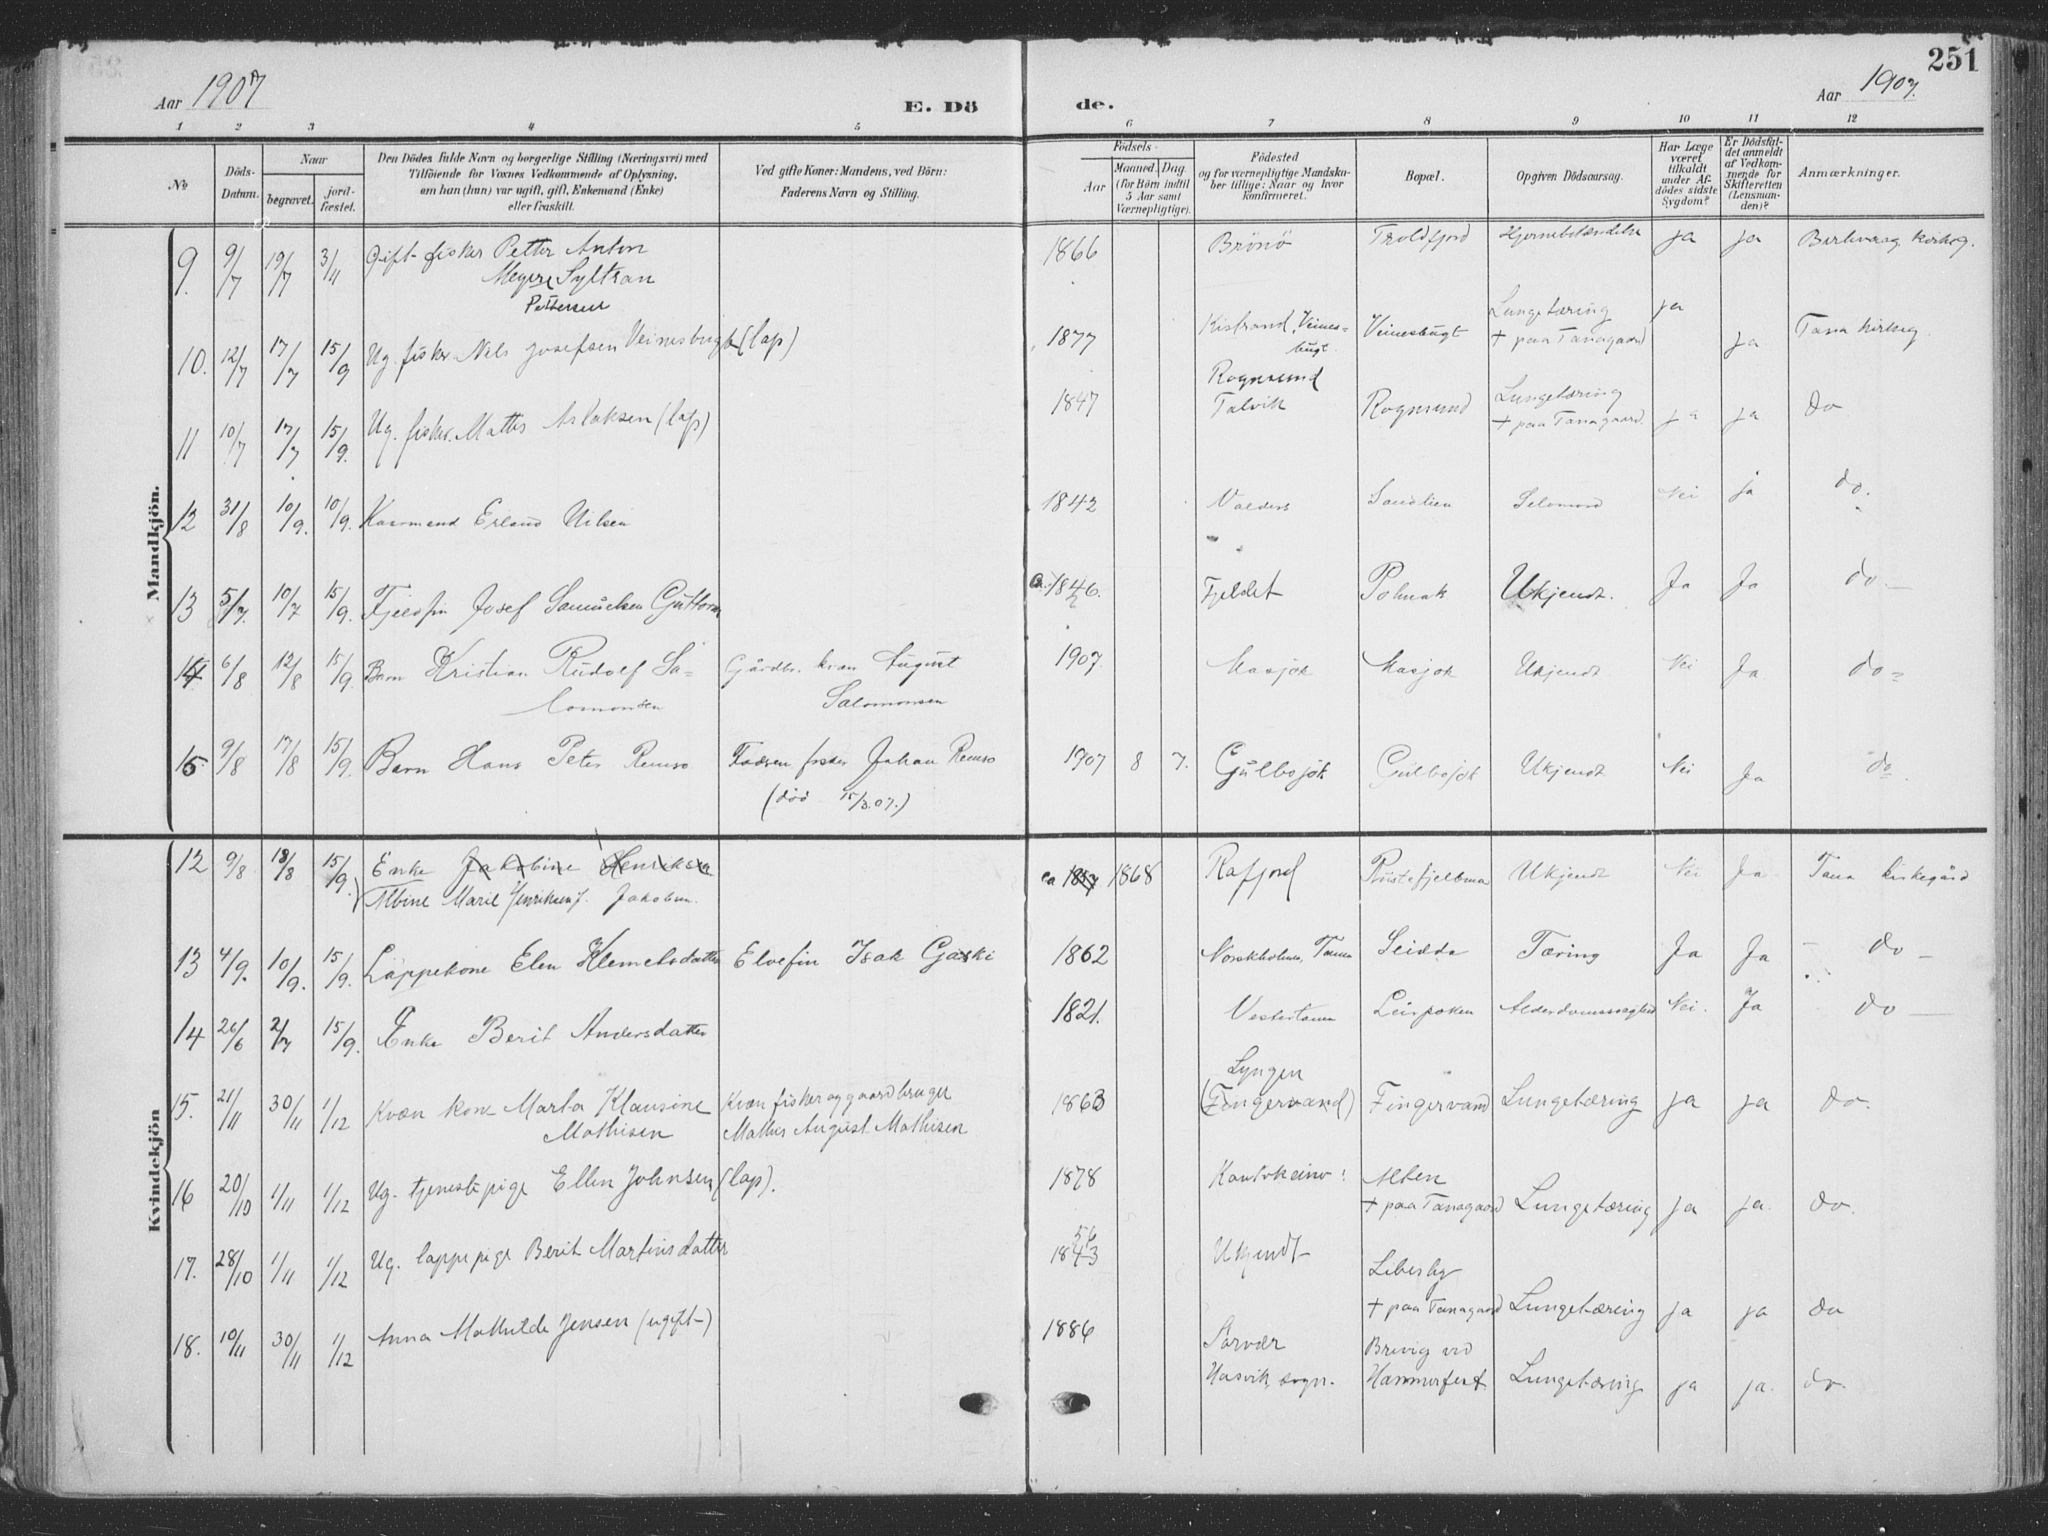 251
Aar 1907
E. Dö de.
Aar 1907.
1 2 3 4 5 6 7 8 9 10 11 12
No
Döds-Datum.
Naar
begravet.
jord-fæstet.
Den Dödes fulde Navn og borgerlige Stilling (Næringsvei) med
Tilföiende for Voxnes Vedkommende af Oplysning,
om han (hun) var ugift, gift, Enkemand (Enke)
eller fraskilt.
Ved gifte Koner: Mandens, ved Börn:
Faderens Navn og Stilling.
Födsels-
Aar
Maaned. Dag.
(for Börn indtil
5 Aar samt
Værnepligtige).
Födested
og for værnepligtige Mandska-
ber tillige: Naar og hvor
konfirmeret.
Bopæl.
Opgiven Dödsaarsag.
Har Læge
været
tilkaldt
under Af-
dödes sidste
Sygdom?
Er Dödsfal-
det anmeldt
af Vedkom-
mende for
Skifteretten
(Lensman-
den)?
Anmærkninger.
Mandkjön.
9. 9/7 19/7 3/11 Gift fisker Petter Anton 1866 Brönö Troldfjord Hjernebetændelse ja ja Berlevaag kirkeg.
Meyer Syltran
Pettersen
10. 12/7 17/7 15/9 Ug. fisker Nils Josefsen Veinesbugt (lap) 1877 Kistrand, Veines-bugt. Veinesbugt Lungetæring ja ja Tana kirkeg.
+ paa Tanagaard
11 10/7 17/7 15/9. Ug. fisker. Mattis Aslaksen (lap) 1847 Rognsund Talvik Rognsund Lungetæring ja ja do
+ paa Tanagaard.
12 31/8 10/9. 10/9. Kaarmand Erland Nilsen 1842 Valders Sandlien Selvmord Nei ja do.
13 5/7. 10/7 15/9. Fjeldfin Josef Samuelsen Guttorm ca. 1846. Fjeldet Polmak Ukjendt. Ja Ja do
14 6/8 12/8 15/9. Barn Kristian Rudolf Sa- Gårdbr. kvæn August 1907. Masjok Masjok Ukjendt Nei Ja do
lomonsen Salomonsen
15 9/8 17/8 15/9. Barn Hans Peter Remso fisker Johan Remso 1907 8 7. Gulbojok Gulbojok Ukjendt Nei Ja do
(död 15/3.07.)
Kvindekjön
12 9/8 18/8 15/9. Enke Jakobine Henriksen ca 1857 1868 Rafjord Rustefjelbma Ukjendt Nei Ja Tana kirkegård
Albine Marie Henriksen f. Jakobsen.
13 4/9. 10/9. 15/9. Lappekone Elen Klemetsdatter Elvefin Isak Gaski 1862 Norskholmen, Tana Seidda Tæring Ja Ja do
14 26/6 2/7 15/9. Enke Berit Andersdatter 1821. Vestertana Leirpoken Alderdomssvaghed Nei. Ja do
15. 21/11 30/11 1/12 Kvæn kone Marta Klausine Kvæn fisker og gaardbruger 1863 Lyngen (Fingervand) Fingervand Lungetæring ja ja do.
Mathisen August Mathisen
16 20/10 1/11 1/12 Ug. tjenestepige Ellen Johnsen (lap). 1878 Kautokeino Alten Lungetæring ja ja. do.
+ paa Tanagaard
17. 28/10 1/11 1/12 Ug. lappepige Berit Martinsdatter 1843 56 Ukjendt Lebesby Lungetæring ja ja do
+ paa Tanagaard
18. 10/11 30/11 1/12 Anna Mathilde Jensen (ugift) 1886 Sørvær Brevig ved
Hasvik sogn. Hammerfest Lungetæring ja ja. do.